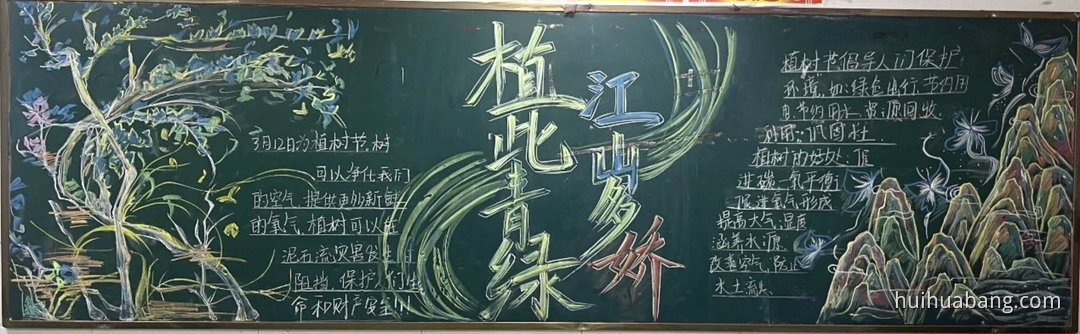 植此青绿
江山多娇
3月12日为植树节,树
可以净化我们
的空气,提供更多新鲜
的氧气,植树可以在
泥石流灾害发生时
阻挡,保护人们生
命和财产安全!!!
植树节倡导人们保护
环境,如:绿色出行,节约用
电节约用水,资源回收
利用,巩固水土
植树的好处:促
进碳一氧平衡
促进氧气形成
提高大气湿度
涵养水源
改善空气,防止
水土流失
huihuabang.com